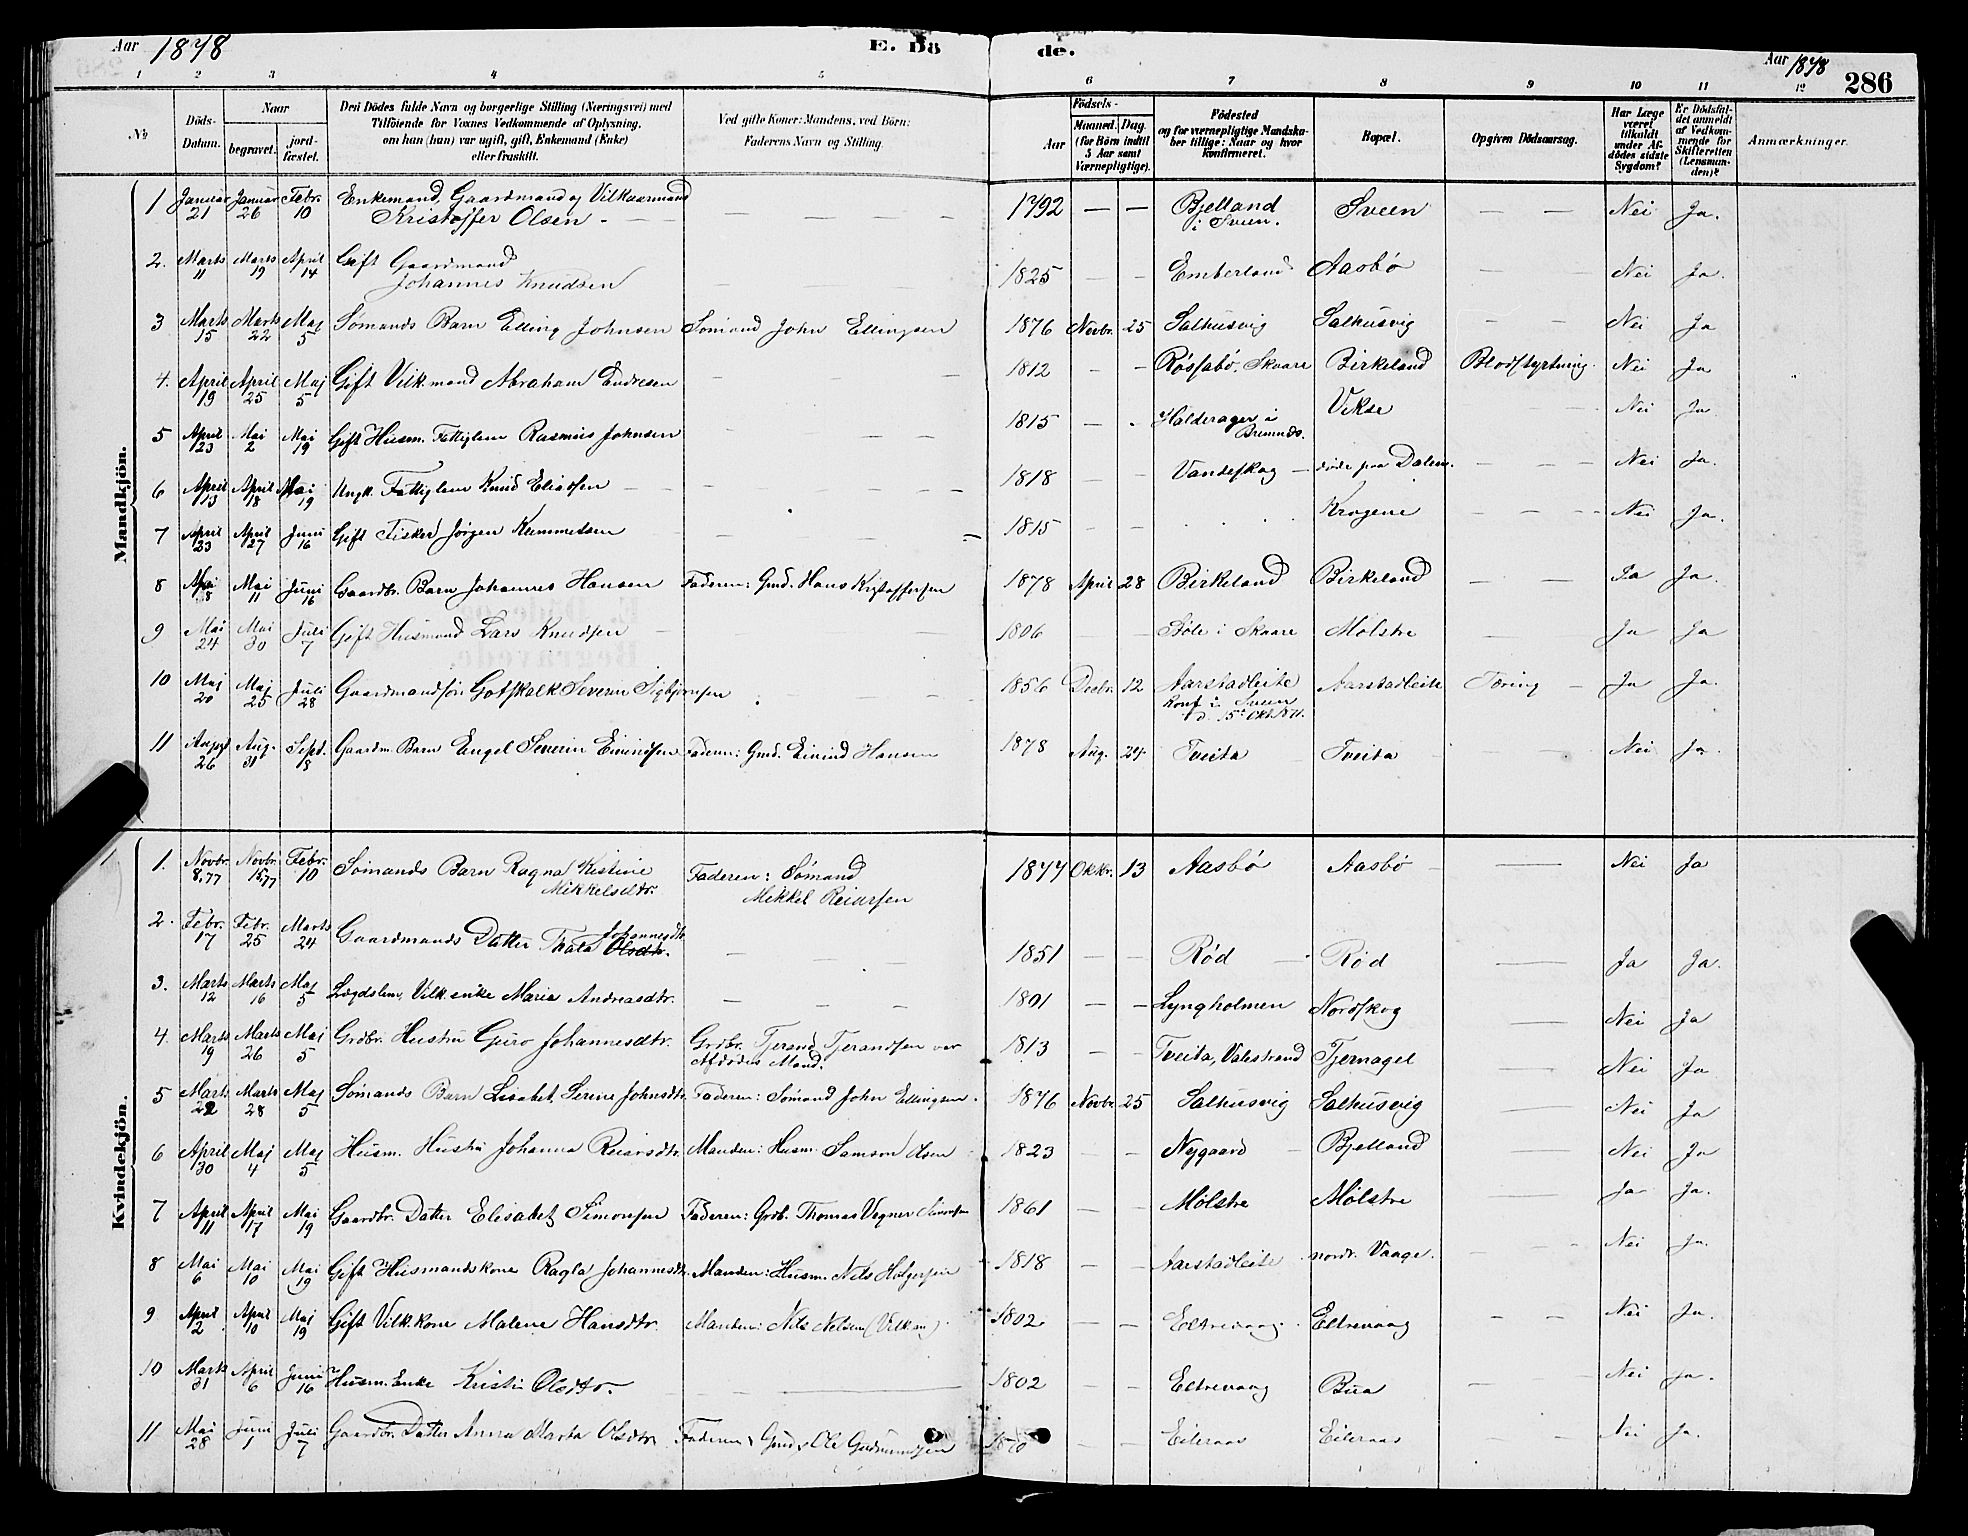 Aar 1878 E. Dö de. Aar 1878 286
1 2 3 4 5 6 7 8 9 10 11 12
№ Döds-Datum. Naar begravet. jordfæstet. Den Dödes fulde Navn og borgerlige Stilling (Næringsvei) med Tilföiende for Voxnes Vedkommende af Oplysning, om han (hun) var ugift, gift, Enkemand (Enke) eller fraskilt. Ved gifte Koner: Mandens, ved Börn: Faderens Navn og Stilling. Födsels- Aar Maaned. Dag. (for Börn indtil 5 Aar samt Værnepligtige). Födested og for værnepligtige Mandskaber tillige: Naar og hvor konfirmeret. Bopæl. Opgiven Dödsaarsag. Har Læge været tilkaldt under Afdödes sidste Sygdom? Er Dödsfaldet anmeldt af Vedkommende for Skifteretten (Lensmanden)? Anmærkninger.
Mandkjön.
1 Januar 21 Januar 26 Febr. 10 Enkemand, Gaardmand og Vilkaarmand Kristoffer Olsen - 1792 — — Bjelland i Sveen. Sveen — — Nei Ja.
2. Marts 11 Marts 19 April 14 Gift Gaardmand Johannes Knudsen 1825 — — Emberland Aasbø — — Nei Ja.
3 Marts 15 Marts 22 Maj 5 Sømands Barn Elling Johnsen Sømand John Ellingsen 1876 Novbr. 25 Salhusvig Salhusvig — — Nei Ja
4. April 19 April 25 Maj 5 Gift Vilk.mand Abraham Endresen 1812 — — Røssabø, Skaare Birkeland Blodstyrtning. Nei Ja
5 April 23 Mai 2 Mai 19 Gift Husm. Fattiglem Rasmus Johnsen 1815 — - Halderager i Bremnds. Vikse Nei Ja
6 April 13 April 18 Mai 19 Ungk. Fattiglem Knud Eliassen 1818 — — Vandeskog — døde paa Dalen. — Nei Ja.
7 April 23 April 27 Juni 16 Gift Fisker Jørgen Kummelsen 1815 — — Krogene — Nei Ja.
8 Mai 8 Mai 11 Juni 16 Gaardbr. Barn Johannes Hansen Faderen: Gmd. Hans Kristoffersen 1878 April 28 Birkeland Birkeland — — Ja Ja.
9 Mai 24 Mai 30 Juli 7 Gift Husmand Lars Knudsen 1806 — Støle i Skaare Mølstre — Ja Ja
10 Maj 20 Maj 25 Juli 28 Gaardmandssøn Gotskalk Severin Sigbjørnsen 1856 Decbr. 12 Aarstadleite Konf i Sveen d. 15de Okt. 1871. Aarstadleite Tæring — Ja Ja.
11 August 26 Aug. 31 Sept. 15 Gaardm. Barn Engel Severin Eivindsen Faderen: Gmd. Eivind Hansen 1878 Aug. 24 Tveita Tveita — Nei Ja.
Kvindekjön.
1. Novbr. 8,77 Novbr. 15,77 Febr. 10 Sømands Barn Ragna Kistine Mikkelsdtr. Faderen: Sømand Mikkel Reiarsen 1877 Oktbr. 13 Aasbø Aasbø — Nei Ja
2. Febr. 17 Febr. 25 Marts 24 Gaardmands Datter Thala Olsdtr. Johannesdtr. 1851 — — Rød — Rød — Ja Ja.
3. Marts 12 Marts 16 Maj 5 Lægdslem, Vilk.enke Maria Andreasdtr. 1801 — — Lyngholmen Nordskog — Nei Ja
4. Marts 19 Marts 26 Maj 5 Grdbr. Hustru Guro Johannesdtr. Grdbr. Tjerand Tjerandsen var Afdødes Mand. 1813 — — Tveita, Valestrand Tjernagel — Nei Ja
5 Marts 22 Marts 28 Maj 5 Sømands Barn Lisabet Serine Johnsdtr. Faderen: Sømand John Ellingsen. 1876 Novbr 25 Salhusvig Salhusvig — Nei Ja
6 April 30 Maj 4 Maj 5 Husm. Hustru Johanna Reiarsdtr. Manden: Husm. Samson Olsen 1823 — — Nygaard Bjelland — Nei Ja
7 April 11 April 17 Mai 19 Gaardbr. Datter Elisabet Simonsen Faderen: Grdb. Thomas Vegner Simonsen 1861 — Mølstre Mølstre — Ja Ja.
8 Mai 6 Mai 10 Mai 19 Gift Husmandskone Ragla Johannesdtr. Manden: Husm. Nils Holgersen 1818 — — Aarstadleite nordr. Vaage. — Nei Ja.
9 April 2 April 10 Maj 19 Gift Vilk.kone Malene Hansdtr. Manden: Nils Nelsen (Vilkm) 1802 — — Eltrevaag Eltrevaag — — Nei Ja.
10 Marts 31 April 6 Juni 16 Husm. Enke Kristi Olsdtr. 1802 — — Eltrevaag Bua — — Nei Ja.
11 Mai 28 Juni 1 Juli 7 Gaardbr. Datter Anna Marta Olsdtr. Faderen: Gmd. Ole Gudmundsen 1870 — — Eileraas Eileraas — Nei Ja.